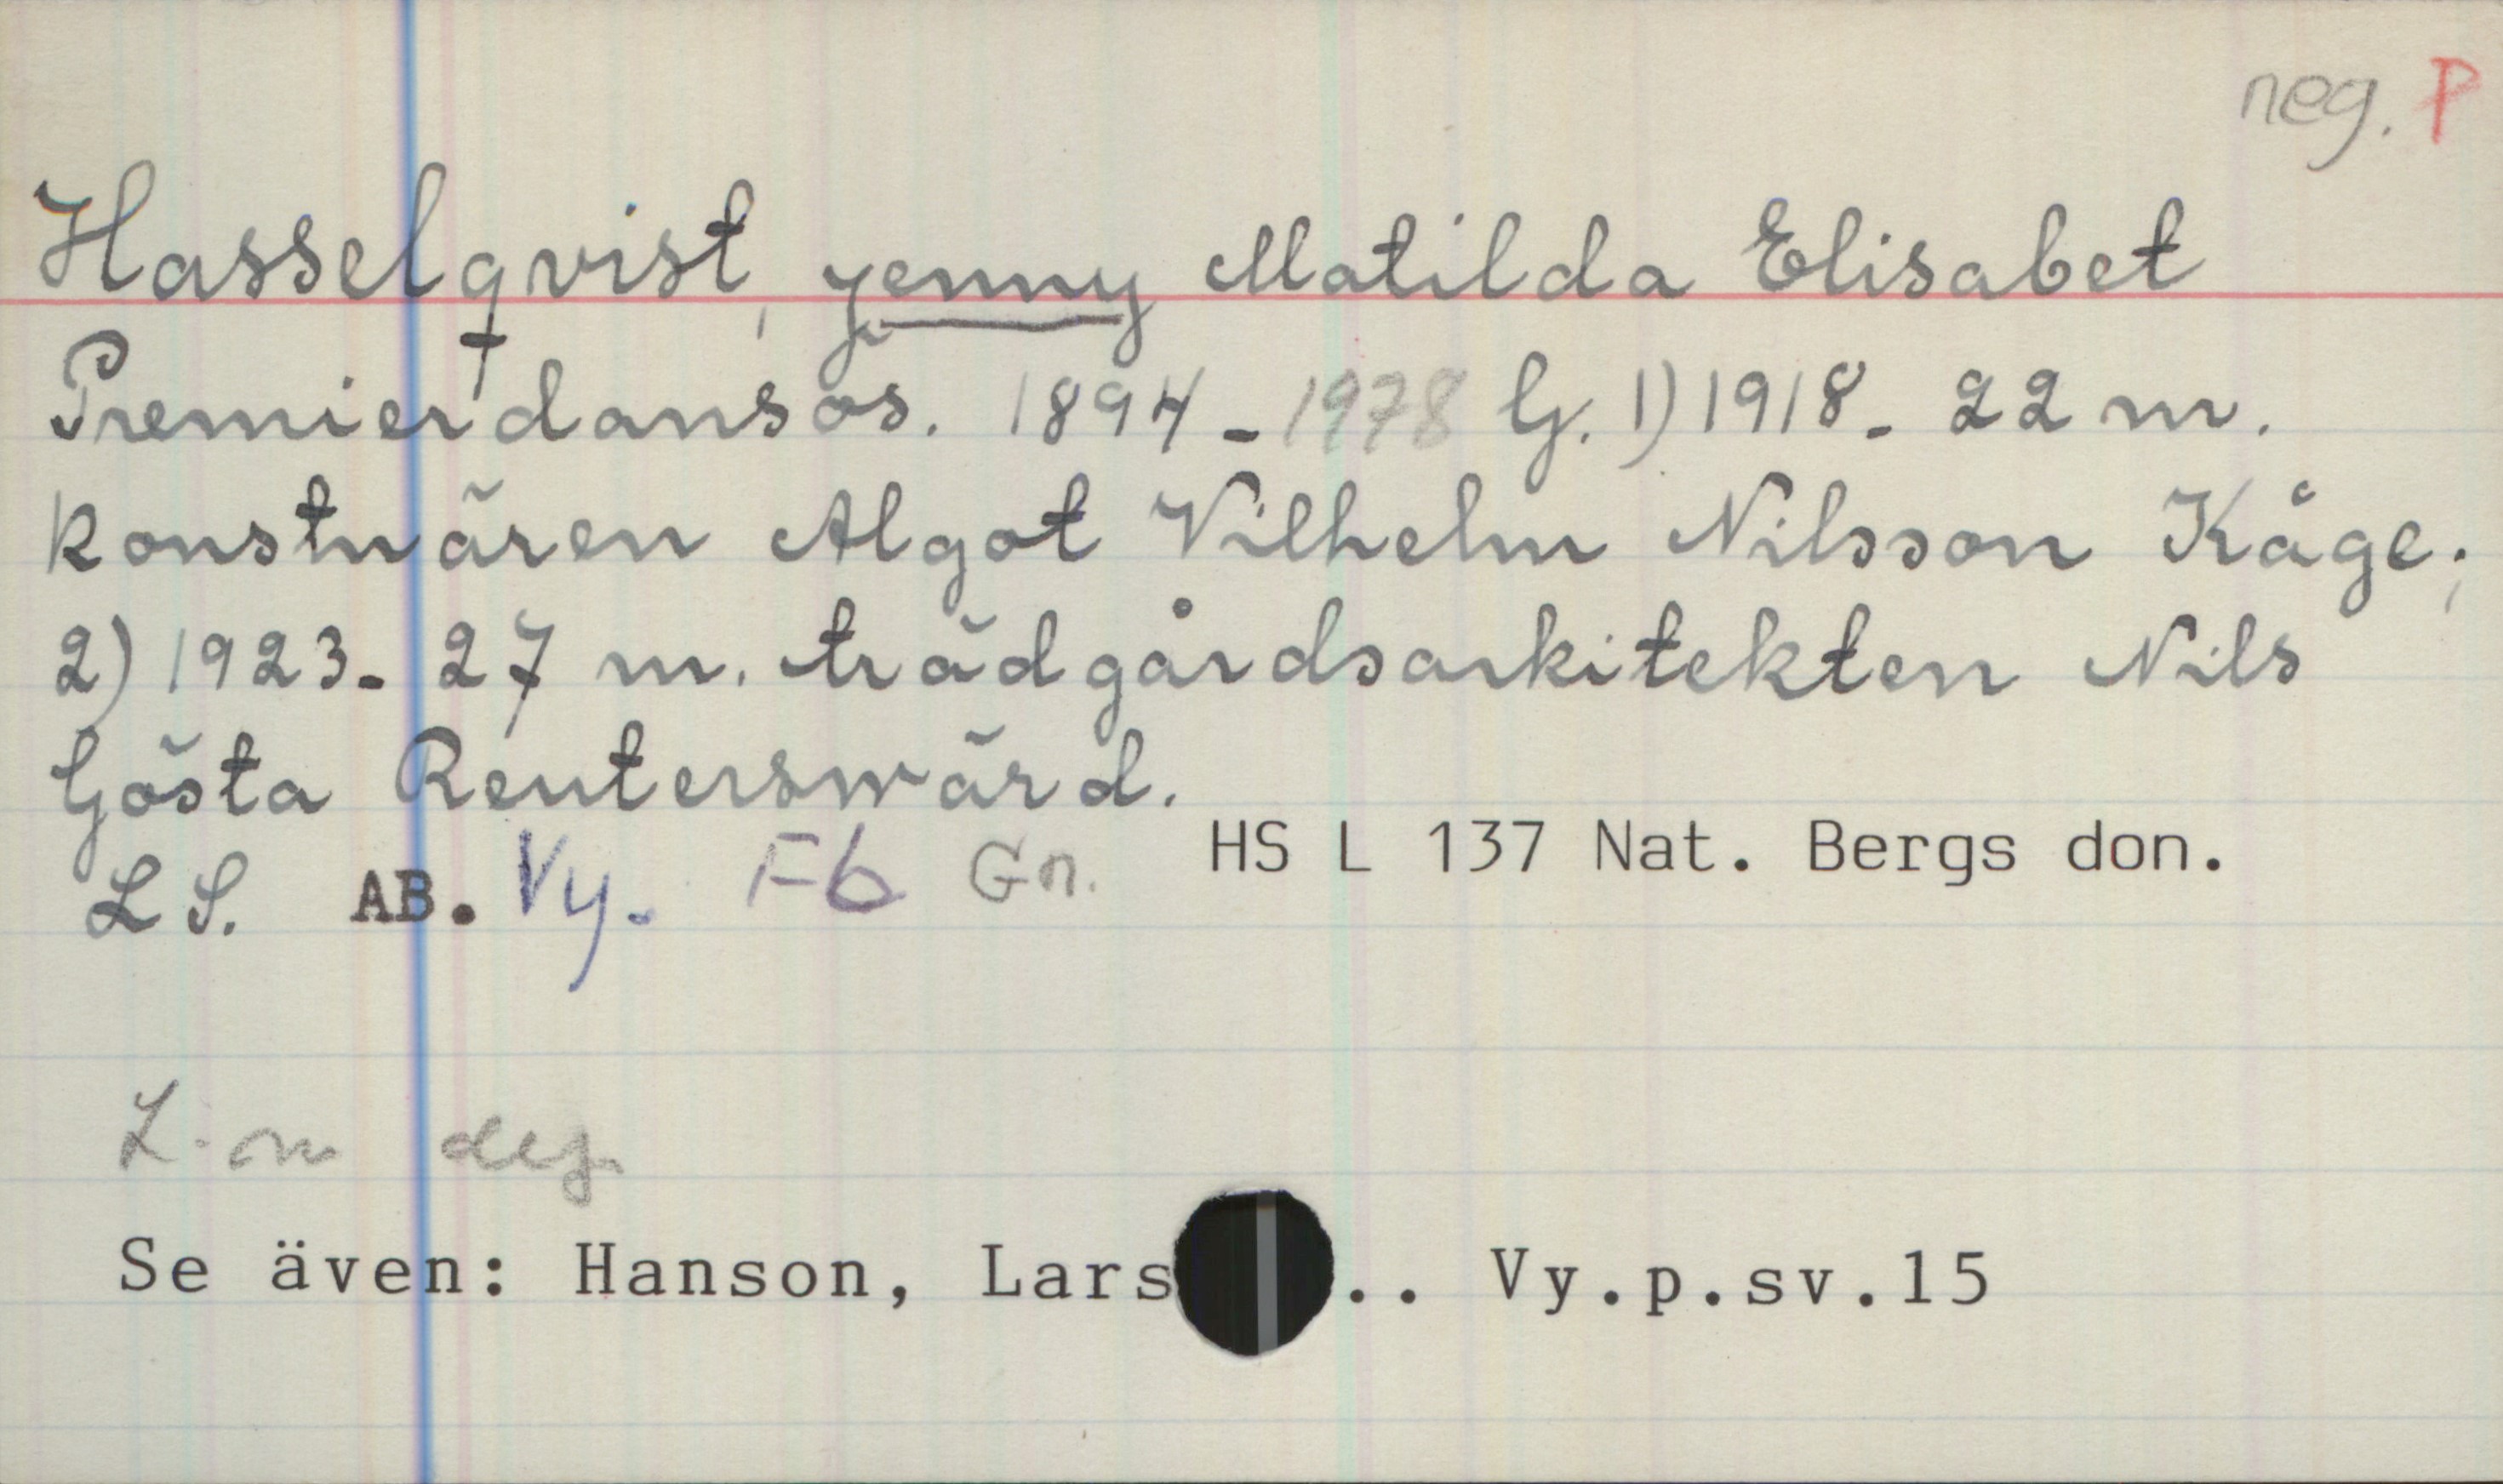 neg. P
Hasselqvist, Jenny Matilda Elisabet
Premierdansös. 1894-1978 G. 1) 1918-22 m.
konstnären Algot Vilhelm Nilsson Kåge;
2) 1923-27 m. trädgårdsarkitekten Nils
Gösta Reuterswärd.
HS L 137 Nat. Bergs don.
L S. AB. Vy. Fb Gn.
L.
Se även: Hanson, Lars .. Vy.p.sv.15